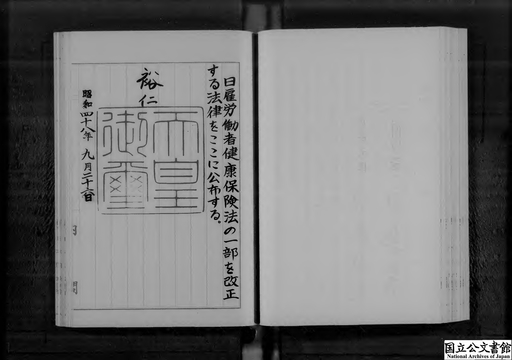 日雇労働者健康保険法の一部を改正
する法律をここに公布する。
裕仁
天皇
御璽
昭和四十八年九月二十六日
国立公文書館
National Archives of Japan